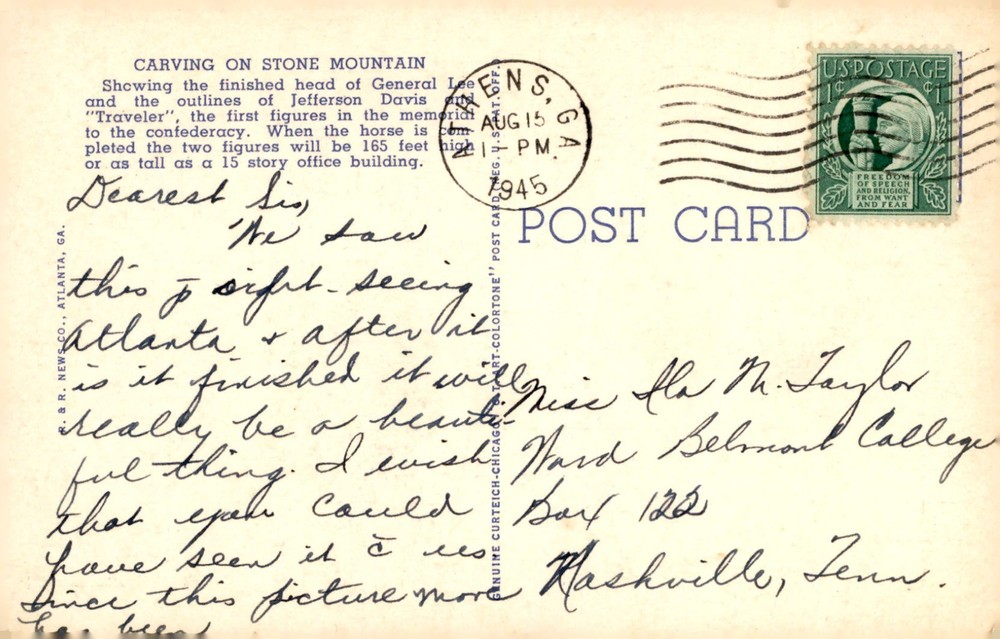 CARVING ON STONE MOUNTAIN
Showing the finished head of General Lee
and the outlines of Jefferson Davis and
"Traveler", the first figures in the memorial
to the confederacy. When the horse is com-
pleted the two figures will be 165 feet high
or as tall as a 15 story office building.
ATHENS, GA
AUG 15
1 - PM
1945
U.S. POSTAGE
1¢ ¢1
FREEDOM
OF SPEECH
AND RELIGION,
FROM WANT
AND FEAR
POST CARD
R. & R. NEWS CO., ATLANTA, GA.
GENUINE CURTEICH-CHICAGO "C.T. ART-COLORTONE" POST CARD (REG. U.S. PAT. OFF.)
Dearest Sis,
We saw
this sight-seeing
Atlanta + after it
is it finished it will
really be a beauti-
ful thing. I wish
that you could
have seen it c̄ us
Since this picture more
has been
Miss Ila M. Taylor
Ward Belmont College
Box 122
Nashville, Tenn.